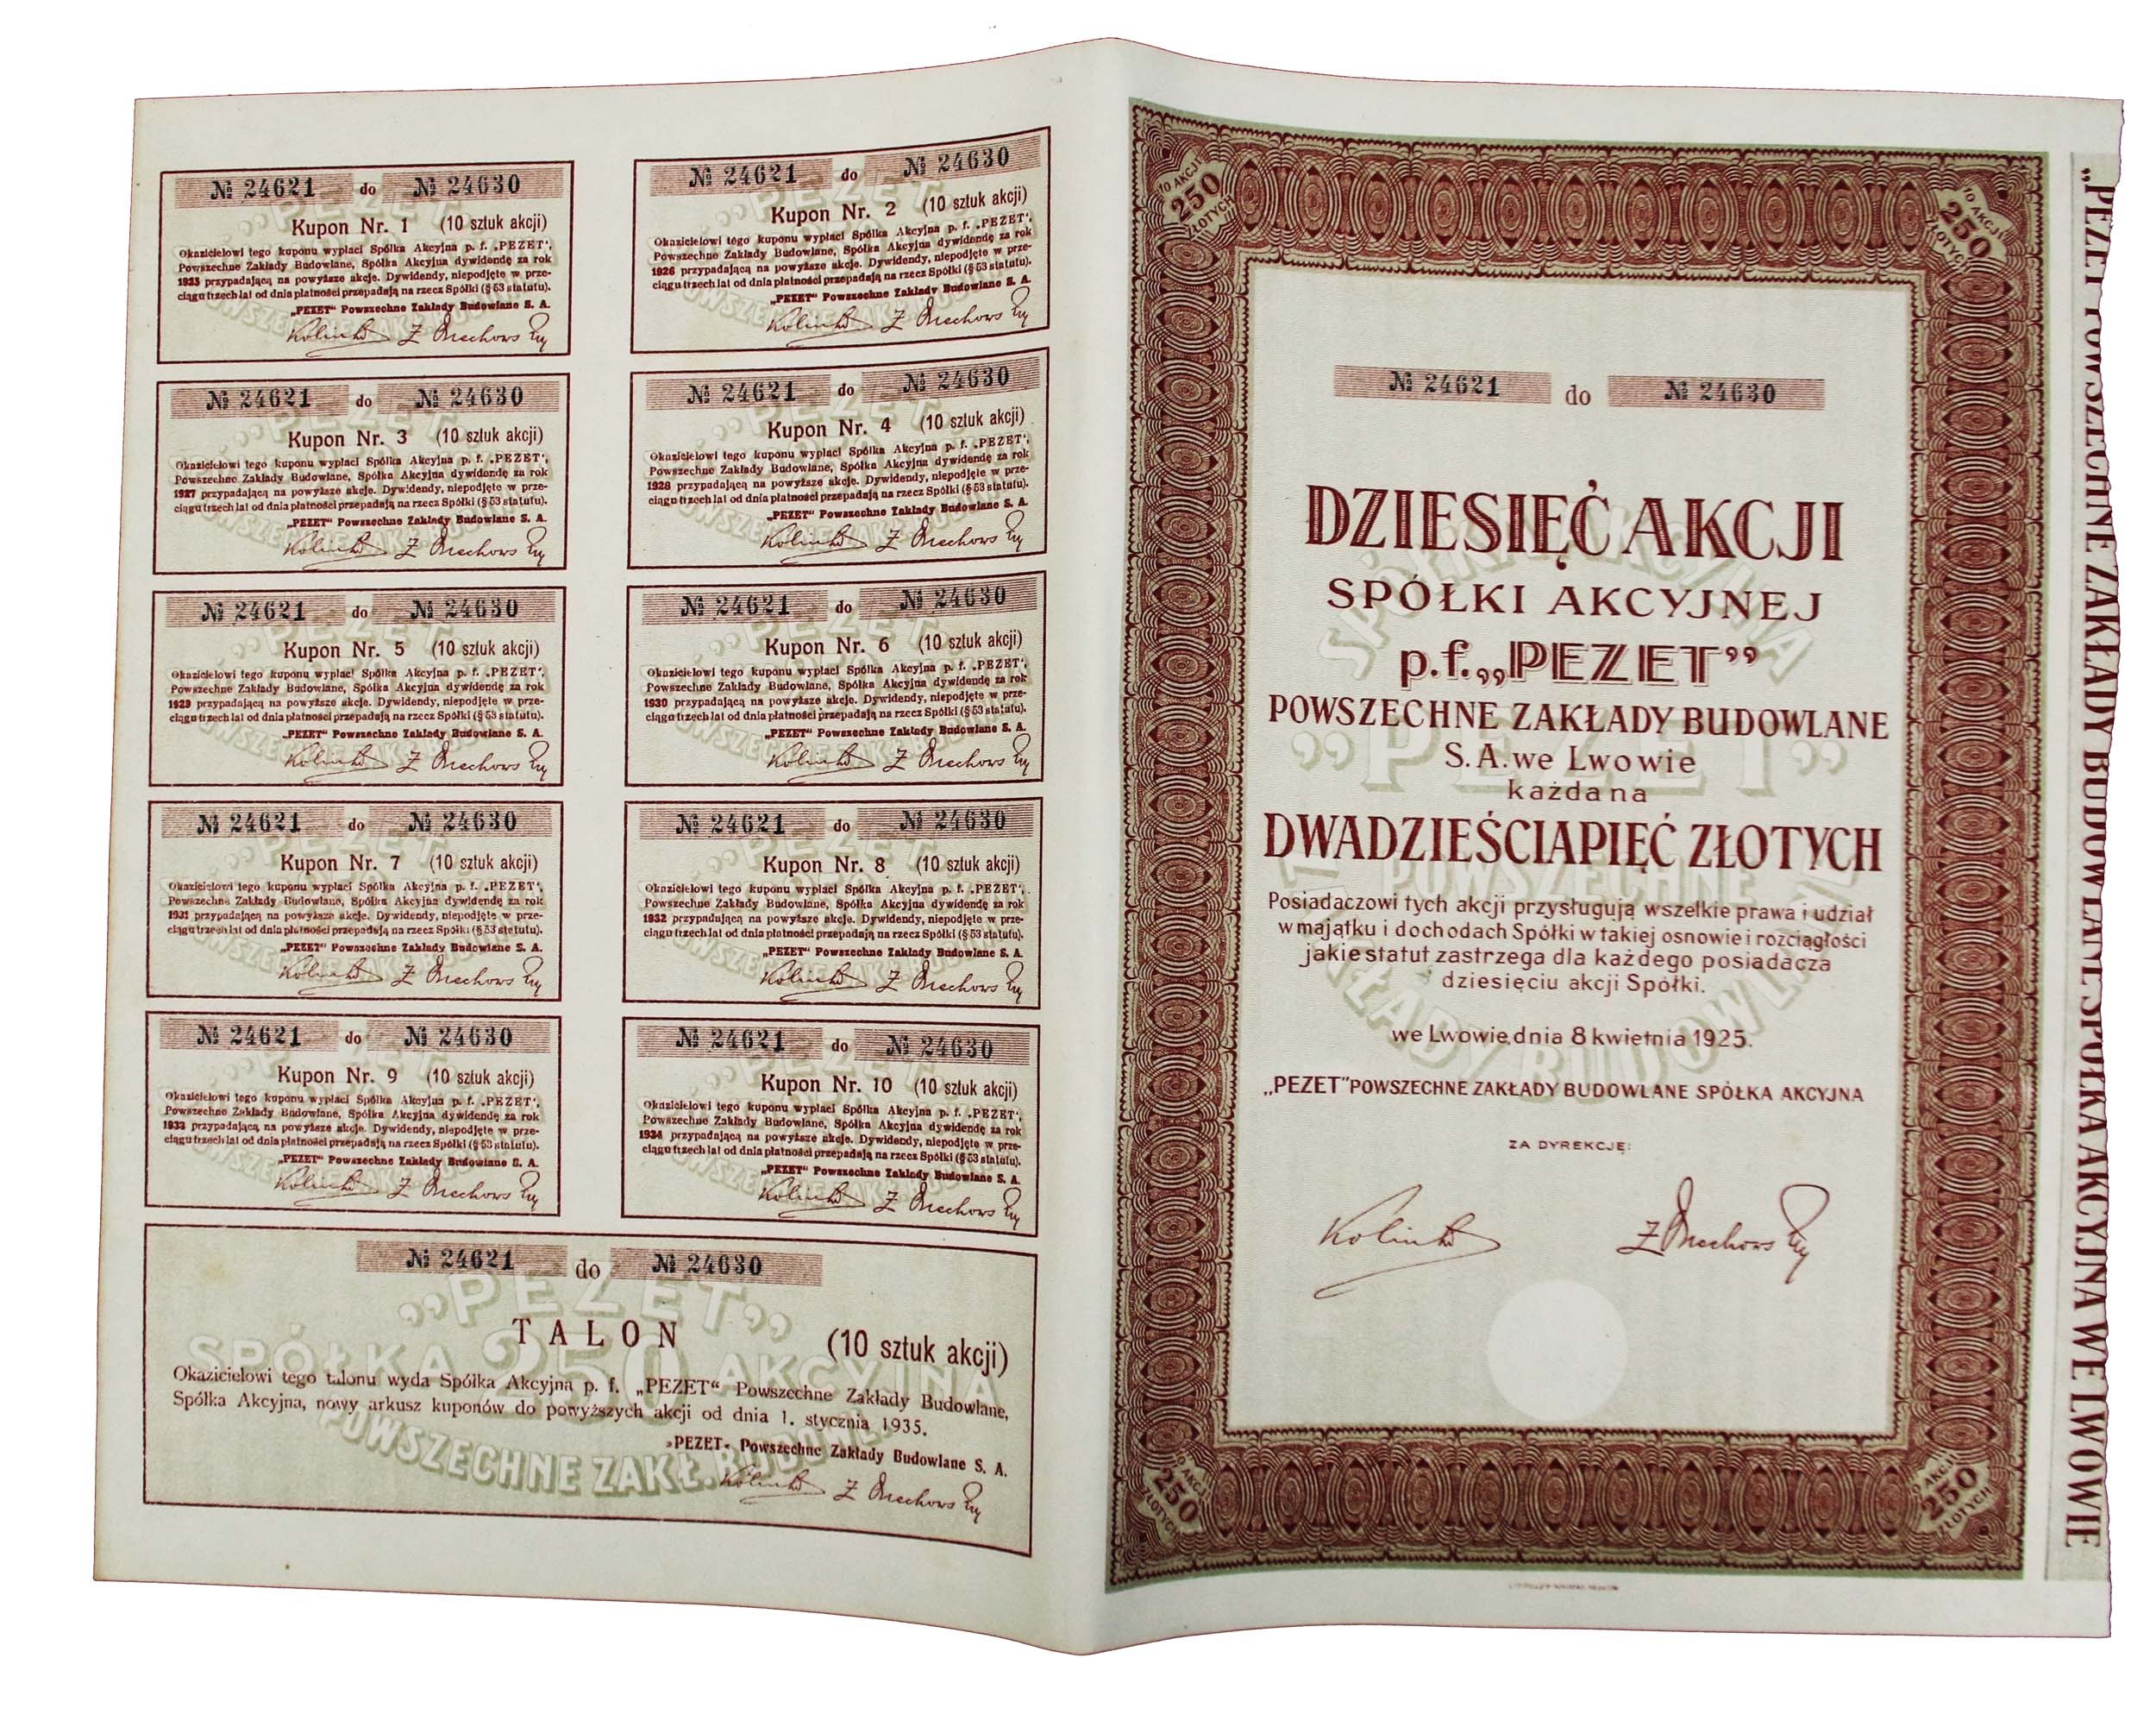 № 24621 do № 24630
Kupon Nr. 1 (10 sztuk akcji)
Okazicielowi tego kuponu wypłaci Spółka Akcyjna p. f. „PEZET",
Powszechne Zakłady Budowlane, Spółka Akcyjna dywidendę za rok
1925 przypadającą na powyższe akcje. Dywidendy, niepodjęte w prze-
ciągu trzech lat od dnia płatności przepadają na rzecz Spółki (§ 53 statutu).
„PEZET" Powszechne Zakłady Budowlane S. A.
№ 24621 do № 24630
Kupon Nr. 2 (10 sztuk akcji)
Okazicielowi tego kuponu wypłaci Spółka Akcyjna p. f. „PEZET",
Powszechne Zakłady Budowlane, Spółka Akcyjna dywidendę za rok
1926 przypadającą na powyższe akcje. Dywidendy, niepodjęte w prze-
ciągu trzech lat od dnia płatności przepadają na rzecz Spółki (§ 53 statutu).
„PEZET" Powszechne Zakłady Budowlane S. A.
№ 24621 do № 24630
Kupon Nr. 3 (10 sztuk akcji)
Okazicielowi tego kuponu wypłaci Spółka Akcyjna p. f. „PEZET",
Powszechne Zakłady Budowlane, Spółka Akcyjna dywidendę za rok
1927 przypadającą na powyższe akcje. Dywidendy, niepodjęte w prze-
ciągu trzech lat od dnia płatności przepadają na rzecz Spółki (§ 53 statutu).
„PEZET" Powszechne Zakłady Budowlane S. A.
№ 24621 do № 24630
Kupon Nr. 4 (10 sztuk akcji)
Okazicielowi tego kuponu wypłaci Spółka Akcyjna p. f. „PEZET",
Powszechne Zakłady Budowlane, Spółka Akcyjna dywidendę za rok
1928 przypadającą na powyższe akcje. Dywidendy, niepodjęte w prze-
ciągu trzech lat od dnia płatności przepadają na rzecz Spółki (§ 53 statutu).
„PEZET" Powszechne Zakłady Budowlane S. A.
№ 24621 do № 24630
Kupon Nr. 5 (10 sztuk akcji)
Okazicielowi tego kuponu wypłaci Spółka Akcyjna p. f. „PEZET",
Powszechne Zakłady Budowlane, Spółka Akcyjna dywidendę za rok
1929 przypadającą na powyższe akcje. Dywidendy, niepodjęte w prze-
ciągu trzech lat od dnia płatności przepadają na rzecz Spółki (§ 53 statutu).
„PEZET" Powszechne Zakłady Budowlane S. A.
№ 24621 do № 24630
Kupon Nr. 6 (10 sztuk akcji)
Okazicielowi tego kuponu wypłaci Spółka Akcyjna p. f. „PEZET",
Powszechne Zakłady Budowlane, Spółka Akcyjna dywidendę za rok
1930 przypadającą na powyższe akcje. Dywidendy, niepodjęte w prze-
ciągu trzech lat od dnia płatności przepadają na rzecz Spółki (§ 53 statutu).
„PEZET" Powszechne Zakłady Budowlane S. A.
№ 24621 do № 24630
Kupon Nr. 7 (10 sztuk akcji)
Okazicielowi tego kuponu wypłaci Spółka Akcyjna p. f. „PEZET",
Powszechne Zakłady Budowlane, Spółka Akcyjna dywidendę za rok
1931 przypadającą na powyższe akcje. Dywidendy, niepodjęte w prze-
ciągu trzech lat od dnia płatności przepadają na rzecz Spółki (§ 53 statutu).
„PEZET" Powszechne Zakłady Budowlane S. A.
№ 24621 do № 24630
Kupon Nr. 8 (10 sztuk akcji)
Okazicielowi tego kuponu wypłaci Spółka Akcyjna p. f. „PEZET",
Powszechne Zakłady Budowlane, Spółka Akcyjna dywidendę za rok
1932 przypadającą na powyższe akcje. Dywidendy, niepodjęte w prze-
ciągu trzech lat od dnia płatności przepadają na rzecz Spółki (§ 53 statutu).
„PEZET" Powszechne Zakłady Budowlane S. A.
№ 24621 do № 24630
Kupon Nr. 9 (10 sztuk akcji)
Okazicielowi tego kuponu wypłaci Spółka Akcyjna p. f. „PEZET",
Powszechne Zakłady Budowlane, Spółka Akcyjna dywidendę za rok
1933 przypadającą na powyższe akcje. Dywidendy, niepodjęte w prze-
ciągu trzech lat od dnia płatności przepadają na rzecz Spółki (§ 53 statutu).
„PEZET" Powszechne Zakłady Budowlane S. A.
№ 24621 do № 24630
Kupon Nr. 10 (10 sztuk akcji)
Okazicielowi tego kuponu wypłaci Spółka Akcyjna p. f. „PEZET",
Powszechne Zakłady Budowlane, Spółka Akcyjna dywidendę za rok
1934 przypadającą na powyższe akcje. Dywidendy, niepodjęte w prze-
ciągu trzech lat od dnia płatności przepadają na rzecz Spółki (§ 53 statutu).
„PEZET" Powszechne Zakłady Budowlane S. A.
№ 24621 do № 24630
„PEZET"
TALON (10 sztuk akcji)
SPÓŁKA 250 AKCYJNA
Okazicielowi tego talonu wyda Spółka Akcyjna p. f. „PEZET" Powszechne Zakłady Budowlane,
Spółka Akcyjna, nowy arkusz kuponów do powyższych akcji od dnia 1. stycznia 1935.
„PEZET" Powszechne Zakłady Budowlane S. A.
POWSZECHNE ZAKŁ. BUDOWL.
10 AKCJI
250
ZŁOTYCH
10 AKCJI
250
ZŁOTYCH
№ 24621 do № 24630
DZIESIĘĆ AKCJI
SPÓŁKI AKCYJNEJ
p.f. „PEZET"
POWSZECHNE ZAKŁADY BUDOWLANE
S. A. we Lwowie
każda na
DWADZIEŚCIAPIĘĆ ZŁOTYCH
Posiadaczowi tych akcji przysługują wszelkie prawa i udział
w majątku i dochodach Spółki w takiej osnowie i rozciągłości
jakie statut zastrzega dla każdego posiadacza
dziesięciu akcji Spółki.
we Lwowie, dnia 8 kwietnia 1925.
„PEZET" POWSZECHNE ZAKŁADY BUDOWLANE SPÓŁKA AKCYJNA
ZA DYREKCJĘ:
SPÓŁKA AKCYJNA
„PEZET"
POWSZECHNE
ZAKŁADY BUDOWLANE
10 AKCJI
250
ZŁOTYCH
10 AKCJI
250
ZŁOTYCH
„PEZET" POWSZECHNE ZAKŁADY BUDOWLANE SPÓŁKA AKCYJNA WE LWOWIE